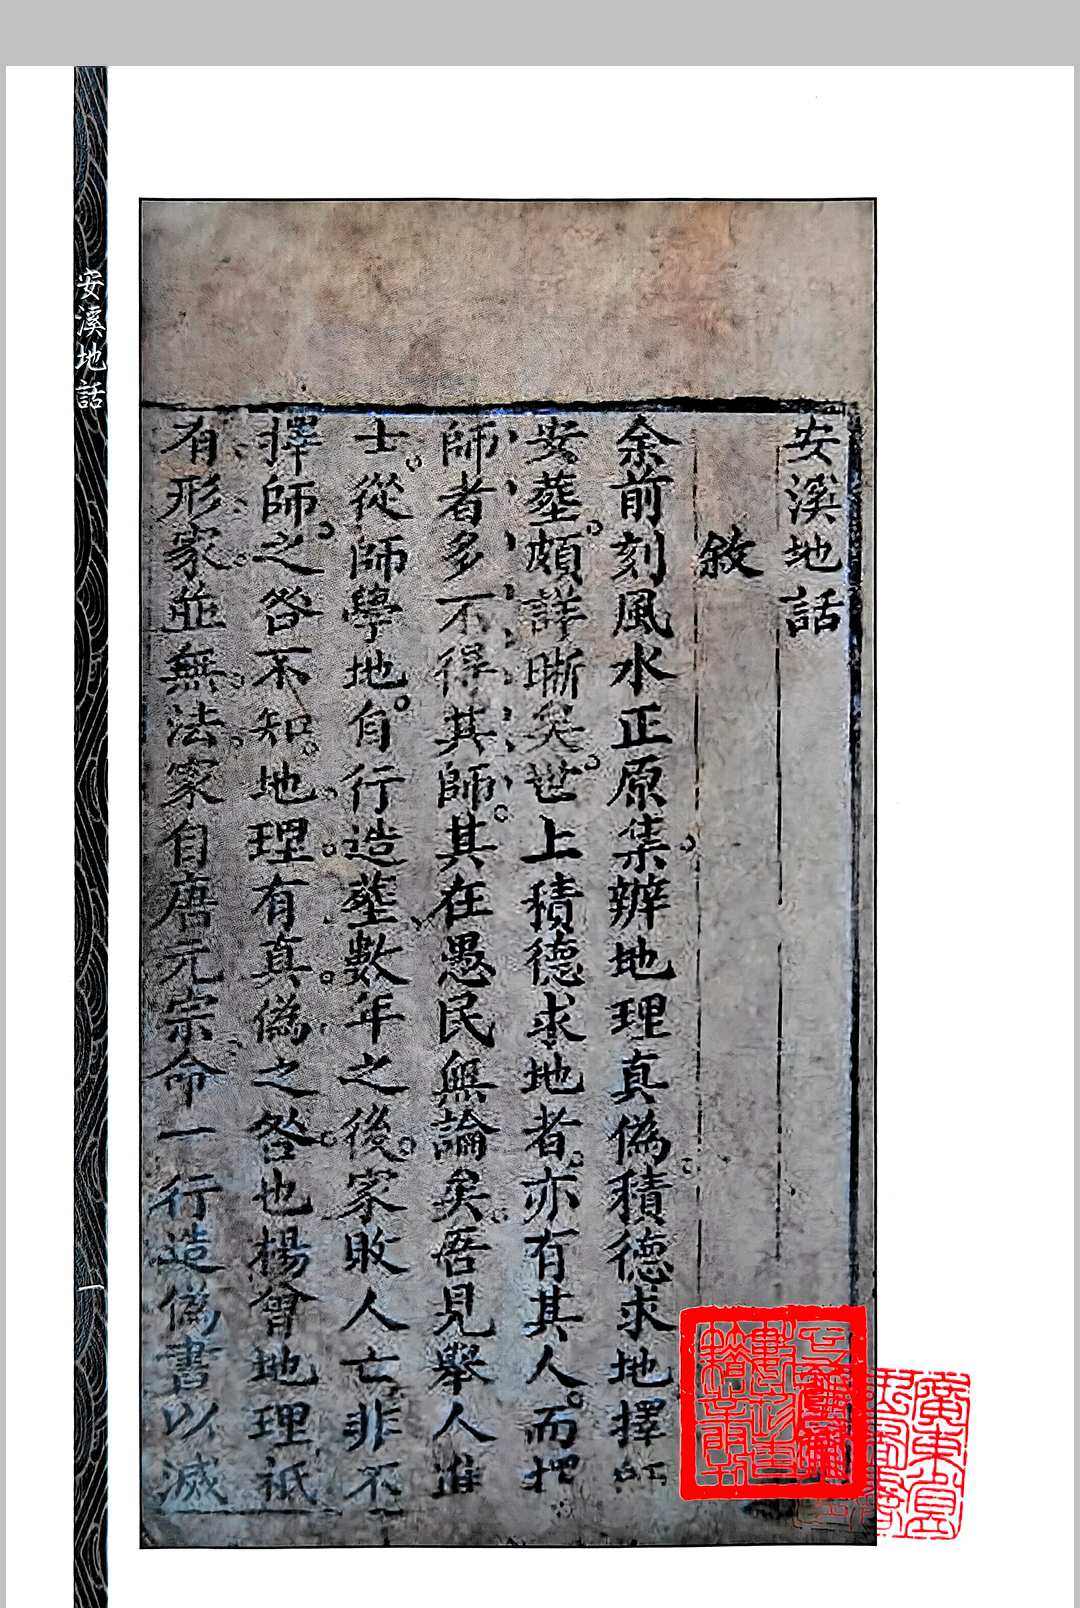 安溪地話
敘
余前刻風水正原集辦地理真偽積德求地擇
安葬頗詳晰矣世上積德求地者亦有其人而擇
師者多不得其師其在愚民無論矣吾見舉人進
士從師學地自行造葬數年之後家敗人亡非不
擇師之咎不知地理有真偽之咎也楊曾地理祇
有形家並無法家自唐元宗命一行造偽書以滅
安溪地話
一